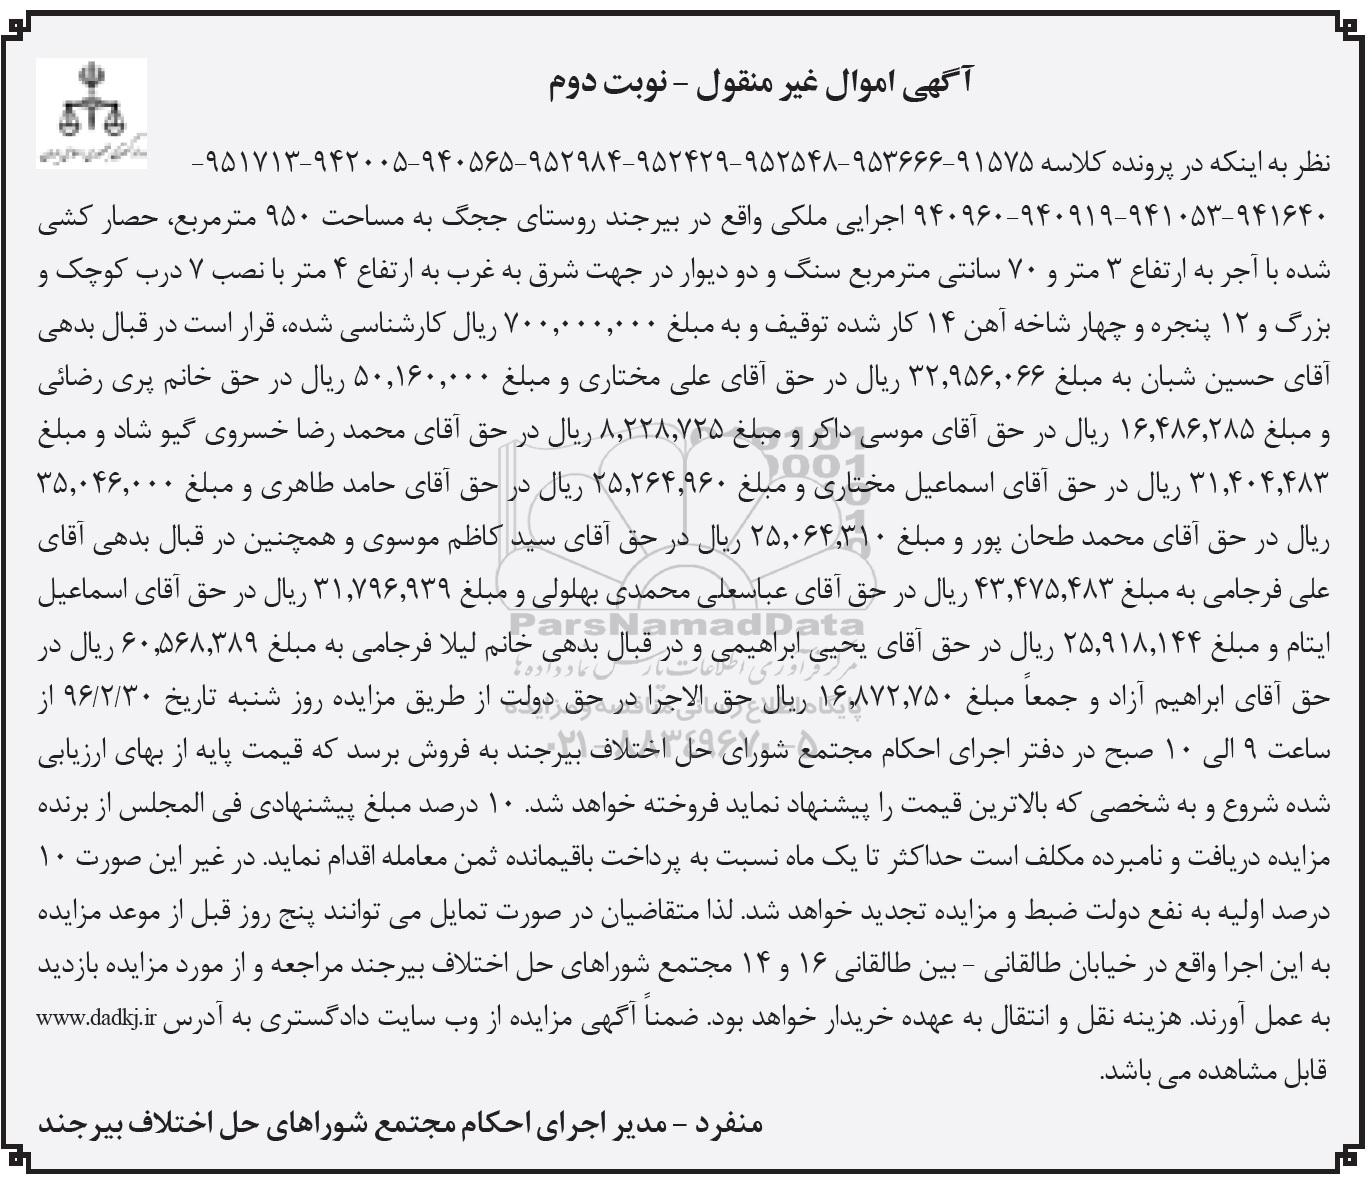 آگهی اموال غیر منقول - نوبت دوم
نظر به اینکه در پرونده کلاسه ۹۱۵۷۵-۹۵۳۶۶۶-۹۵۲۵۴۸-۹۵۲۴۲۹-۹۵۲۹۸۴-۹۴۰۵۶۵-۹۴۲۰۰۵-۹۵۱۷۱۳-
۹۴۱۶۴۰-۹۴۱۰۵۳-۹۴۰۹۱۹-۹۴۰۹۶۰ اجرایی ملکی واقع در بیرجند روستای ججگ به مساحت ۹۵۰ مترمربع، حصار کشی
شده با آجر به ارتفاع ۳ متر و ۷۰ سانتی مترمربع سنگ و دو دیوار در جهت شرق به غرب به ارتفاع ۴ متر با نصب ۷ درب کوچک و
بزرگ و ۱۲ پنجره و چهار شاخه آهن ۱۴ کار شده توقیف و به مبلغ ۷۰۰,۰۰۰,۰۰۰ ریال کارشناسی شده، قرار است در قبال بدهی
آقای حسین شبان به مبلغ ۳۲,۹۵۶,۰۶۶ ریال در حق آقای علی مختاری و مبلغ ۵۰,۱۶۰,۰۰۰ ریال در حق خانم پری رضائی
و مبلغ ۱۶,۴۸۶,۲۸۵ ریال در حق آقای موسی داکر و مبلغ ۸,۲۲۸,۷۲۵ ریال در حق آقای محمد رضا خسروی گیو شاد و مبلغ
۳۱,۴۰۴,۴۸۳ ریال در حق آقای اسماعیل مختاری و مبلغ ۲۵,۲۶۴,۹۶۰ ریال در حق آقای حامد طاهری و مبلغ ۳۵,۰۴۶,۰۰۰
ریال در حق آقای محمد طحان پور و مبلغ ۲۵,۰۶۴,۳۱۰ ریال در حق آقای سید کاظم موسوی و همچنین در قبال بدهی آقای
علی فرجامی به مبلغ ۴۳,۴۷۵,۴۸۳ ریال در حق آقای عباسعلی محمدی بهلولی و مبلغ ۳۱,۷۹۶,۹۳۹ ریال در حق آقای اسماعیل
ایتام و مبلغ ۲۵,۹۱۸,۱۴۴ ریال در حق آقای یحیی ابراهیمی و در قبال بدهی خانم لیلا فرجامی به مبلغ ۶۰,۵۶۸,۳۸۹ ریال در
حق آقای ابراهیم آزاد و جمعاً مبلغ ۱۶,۸۷۲,۷۵۰ ریال حق الاجرا در حق دولت از طریق مزایده روز شنبه تاریخ ۹۶/۲/۳۰ از
ساعت ۹ الی ۱۰ صبح در دفتر اجرای احکام مجتمع شورای حل اختلاف بیرجند به فروش برسد که قیمت پایه از بهای ارزیابی
شده شروع و به شخصی که بالاترین قیمت را پیشنهاد نماید فروخته خواهد شد. ۱۰ درصد مبلغ پیشنهادی فی المجلس از برنده
مزایده دریافت و نامبرده مکلف است حداکثر تا یک ماه نسبت به پرداخت باقیمانده ثمن معامله اقدام نماید. در غیر این صورت ۱۰
درصد اولیه به نفع دولت ضبط و مزایده تجدید خواهد شد. لذا متقاضیان در صورت تمایل می توانند پنج روز قبل از موعد مزایده
به این اجرا واقع در خیابان طالقانی - بین طالقانی ۱۶ و ۱۴ مجتمع شوراهای حل اختلاف بیرجند مراجعه و از مورد مزایده بازدید
به عمل آورند. هزینه نقل و انتقال به عهده خریدار خواهد بود. ضمناً آگهی مزایده از وب سایت دادگستری به آدرس www.dadkj.ir
قابل مشاهده می باشد.
منفرد - مدیر اجرای احکام مجتمع شوراهای حل اختلاف بیرجند
ParsNamadData
مرکز فرآوری اطلاعات پارس نماد داده ها
پایگاه اطلاع رسانی مناقصه و مزایده
۰۲۱-۸۸۳۴۹۶۷۰-۵